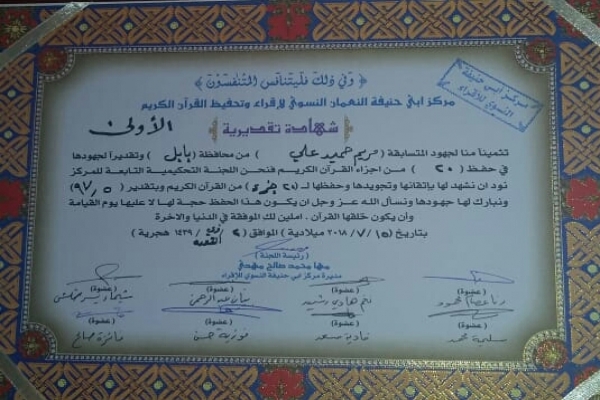 ﴿ وَفِي ذَلِكَ فَلْيَتَنَافَسِ الْمُتَنَافِسُونَ ﴾
مركز ابي حنيفة
النسوي للأقراء
مركز ابي حنيفة النعمان النسوي لإقراء وتحفيظ القرآن الكريم
شهادة تقديرية
الأولى
تثميناً منا لجهود المتسابقة ( مريم حميد علي ) من محافظة ( بابل ) وتقديراً لجهودها
في حفظ ( ٢٠ ) من اجزاء القرآن الكريم فنحن اللجنة التحكيمية التابعة للمركز
نود ان نشهد لها بإتقانها وتجويدها وحفظها لـ ( ٢٠ جزء ) من القرآن الكريم وبتقدير ( ٩٧٫٥ )
ونبارك لها جهودها ونسأل الله عز وجل ان يكون هذا الحفظ حجة لها لا عليها يوم القيامة
وأن يكون خلقها القرآن . املين لك الموفقة في الدنيا والاخرة
بتاريخ ( ١٥ / ٧ / ٢٠١٨ ميلادية ) الموافق ( ٢ ذو القعدة ١٤٣٩ هجرية )
( رئيسة اللجنة )
مها محمد صالح مهدي
مديرة مركز ابي حنيفة النسوي للإقراء
( عضوة ) ( عضوة ) ( عضوة ) ( عضوة )
محمود نغم هادي رشيد بيان عبد الرحمن شيماء
( عضوة ) ( عضوة ) ( عضوة ) ( عضوة )
سليمة محمد نادية سعد فوزية حسن فائزة صالح